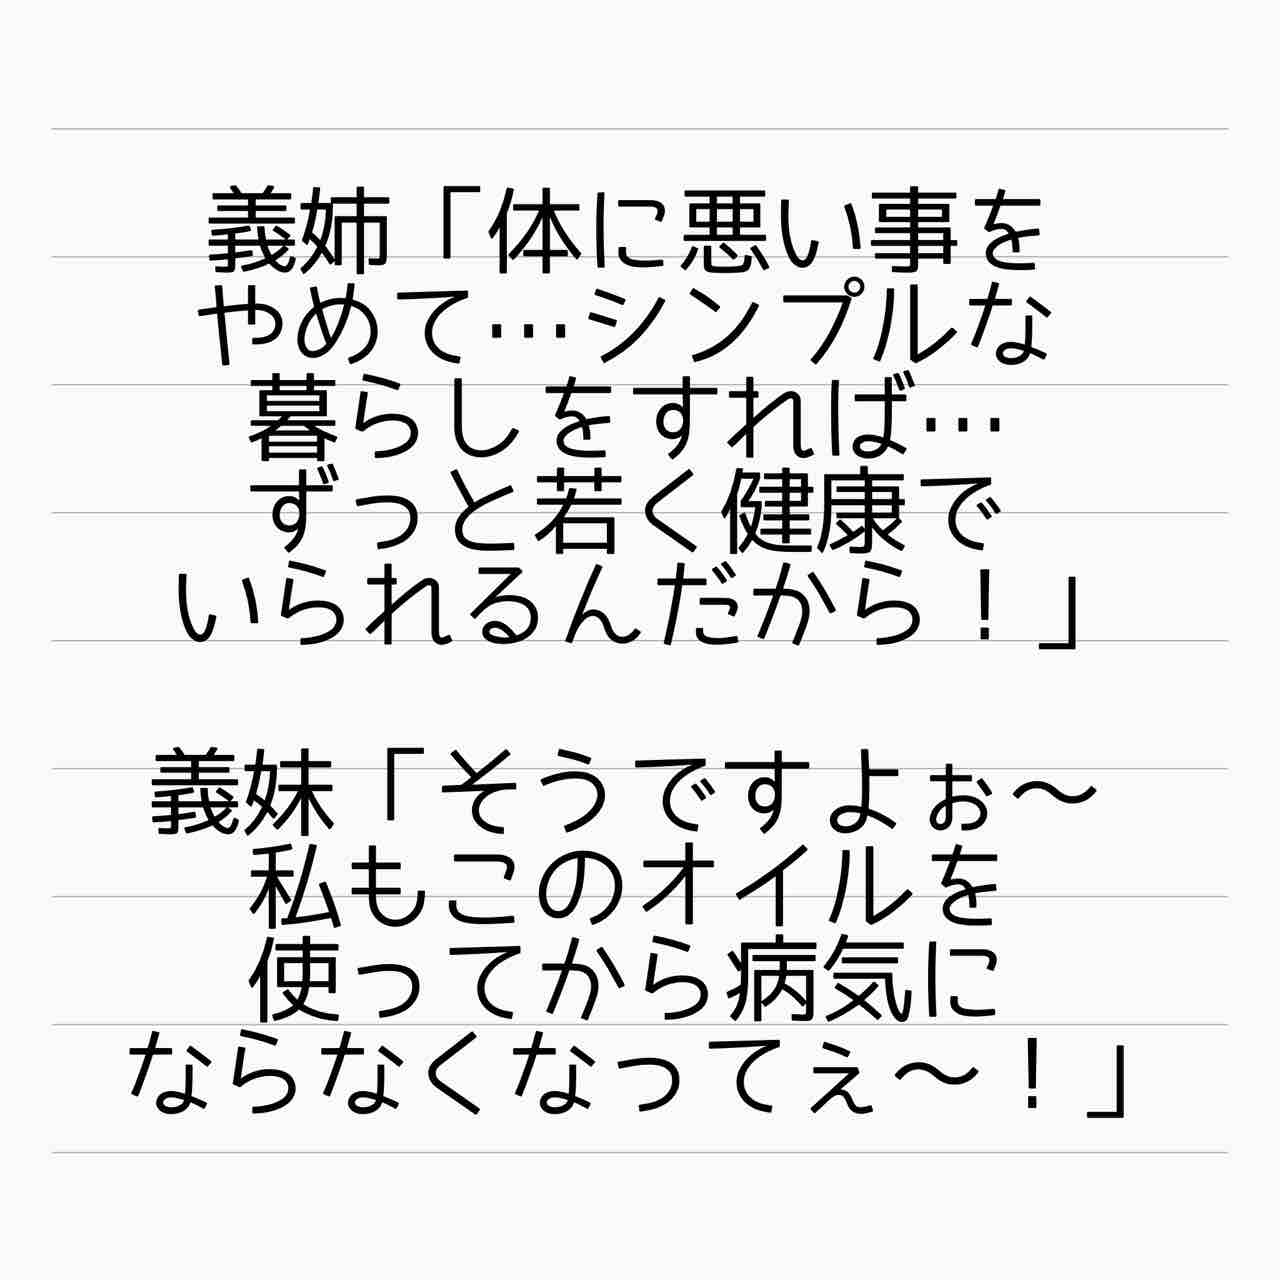 義姉「体に悪い事を
やめて…シンプルな
暮らしをすれば…
ずっと若く健康で
いられるんだから！」
義妹「そうですよぉ〜
私もこのオイルを
使ってから病気に
ならなくなってぇ〜！」